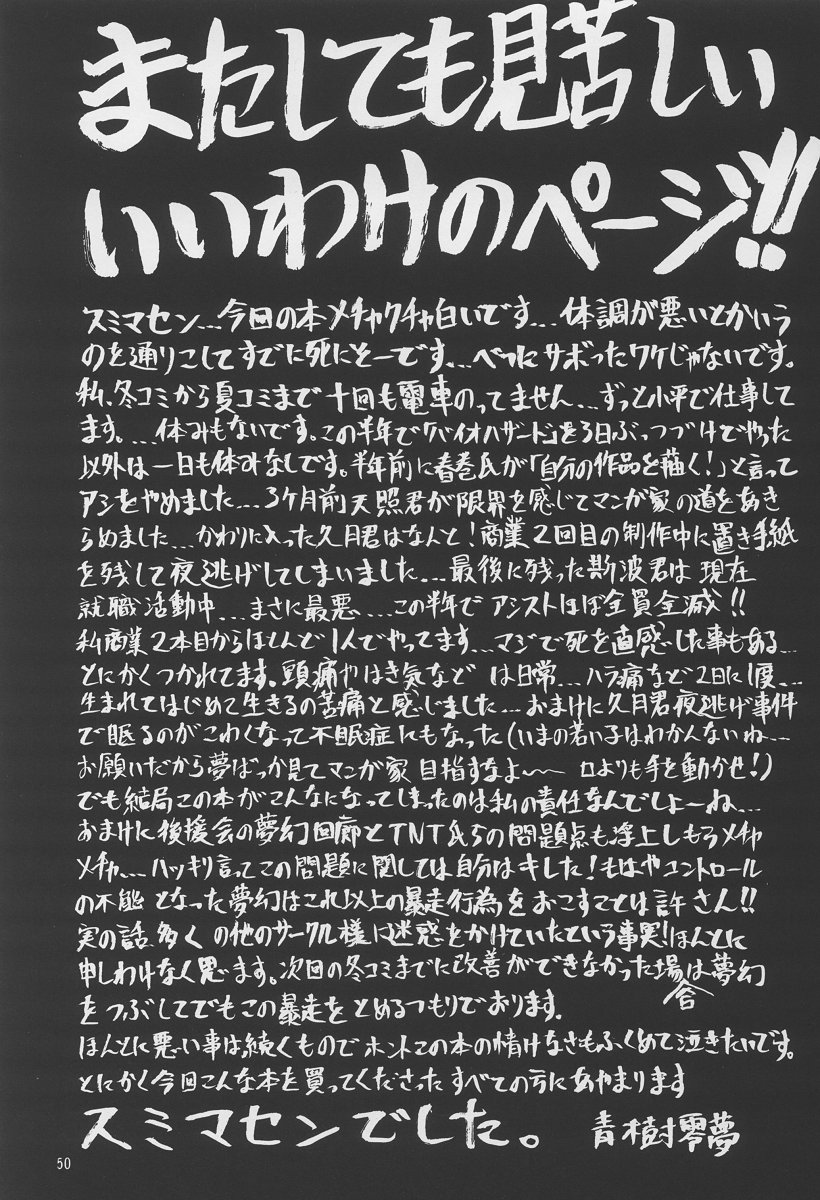 またしても見苦しい
いいわけのページ!!
スミマセン…今回の本メチャクチャ白いです…体調が悪いとかいう
のを通りこしてすでに死にそーです…べつにサボったワケじゃないです。
私、冬コミから夏コミまで十回も電車のってません…ずっと小平で仕事して
ます。…休みもないです。この半年で「バイオハザード」を3日ぶっつづけでやった
以外は一日も休みなしです。半年前に春巻氏が「自分の作品を描く!」と言って
アシをやめました…3ケ月前天照君が限界を感じてマンガ家の道をあき
らめました…かわりに入った久月君はなんと!商業2回目の制作中に置き手紙
を残して夜逃げしてしまいました…最後に残った斯波君は現在
就職活動中…まさに最悪…この半年でアシストほぼ全員全滅!!
私商業2本目からほとんど1人でやってます…マジで死を直感した事もある…
とにかくつかれてます。頭痛やはき気などは日常…ハラ痛など2日に1度…
生まれてはじめて生きるの苦痛と感じました…おまけに久月君夜逃げ事件
で眠るのがこわくなって不眠症にもなった(いまの若い子はわかんないね…
お願いだから夢ばっか見てマンガ家目指すなよ〜 口よりも手を動かせ!)
でも結局この本がこんなになってしまったのは私の責任なんでしょーね…
おまけに後援会の夢幻回廊とTNT氏らの問題点も浮上しもうメチャ
メチャ…ハッキリ言ってこの問題に関しては自分はキレた!もはやコントロール
の不能となった夢幻はこれ以上の暴走行為をおこすことは許さん!!
実の話多くの他のサークル様に迷惑をかけていたという事実!ほんとに
申しわけなく思います。次回の冬コミまでに改善ができなかった場合は夢幻
をつぶしてでもこの暴走をとめるつもりでおります。
ほんとに悪い事は続くものでホントこの本の情けなさもふくめて泣きたいです。
とにかく今回こんな本を買ってくださったすべての方にあやまります
スミマセンでした。 青樹零夢
50